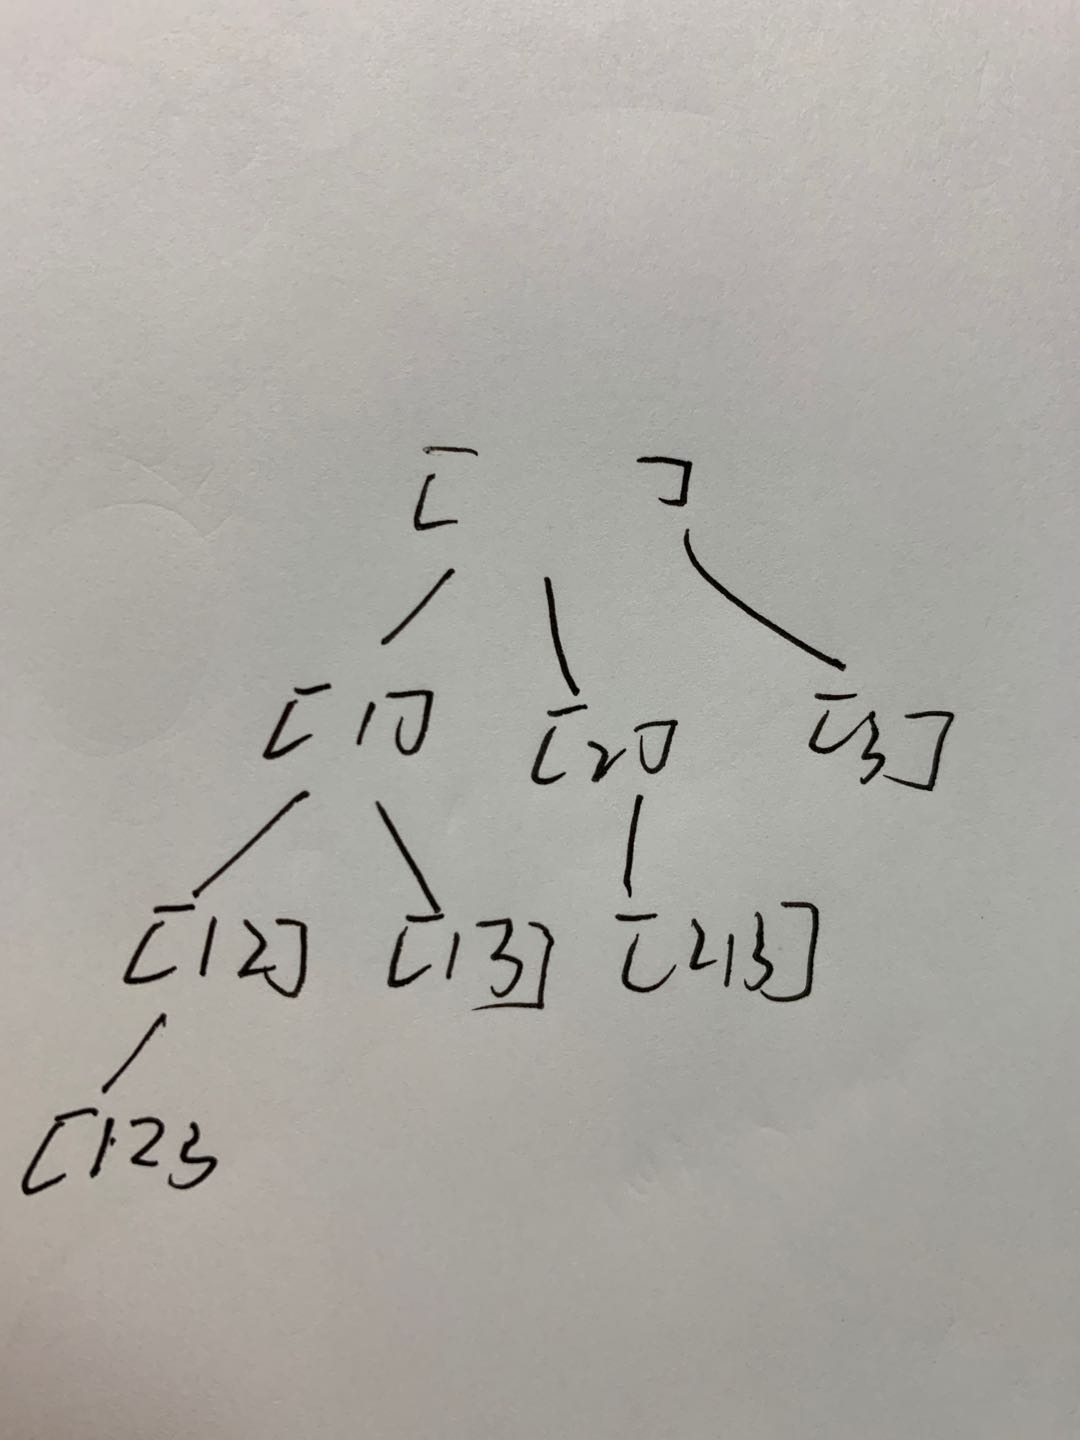 [ ]
[1] [2] [3]
[12] [13] [213]
[123